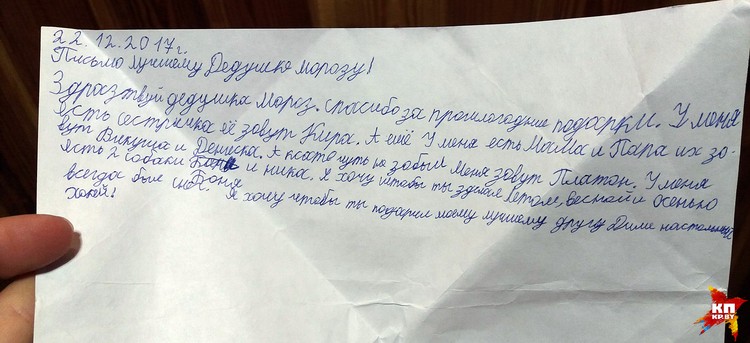 22.12.2017г.
Письмо лучшему Дедушке морозу!
Здразтвуй дедушка Мороз. спасибо за прошлогодние подарки. У меня
есть сестричка её зовут Кира. А ещё У меня есть Мама и Папа их зо-
вут Викуща и Дениска. А кстати чуть не забыл меня зовут Платон. У меня
есть 2 собаки и ника. Я хочу чтобы ты зделал Летом, весной и осенью
Боня
всегда был снег. Я хочу чтобы ты подарил моему лучшему другу Диме настольный
Хокей!
КП
KP.BY